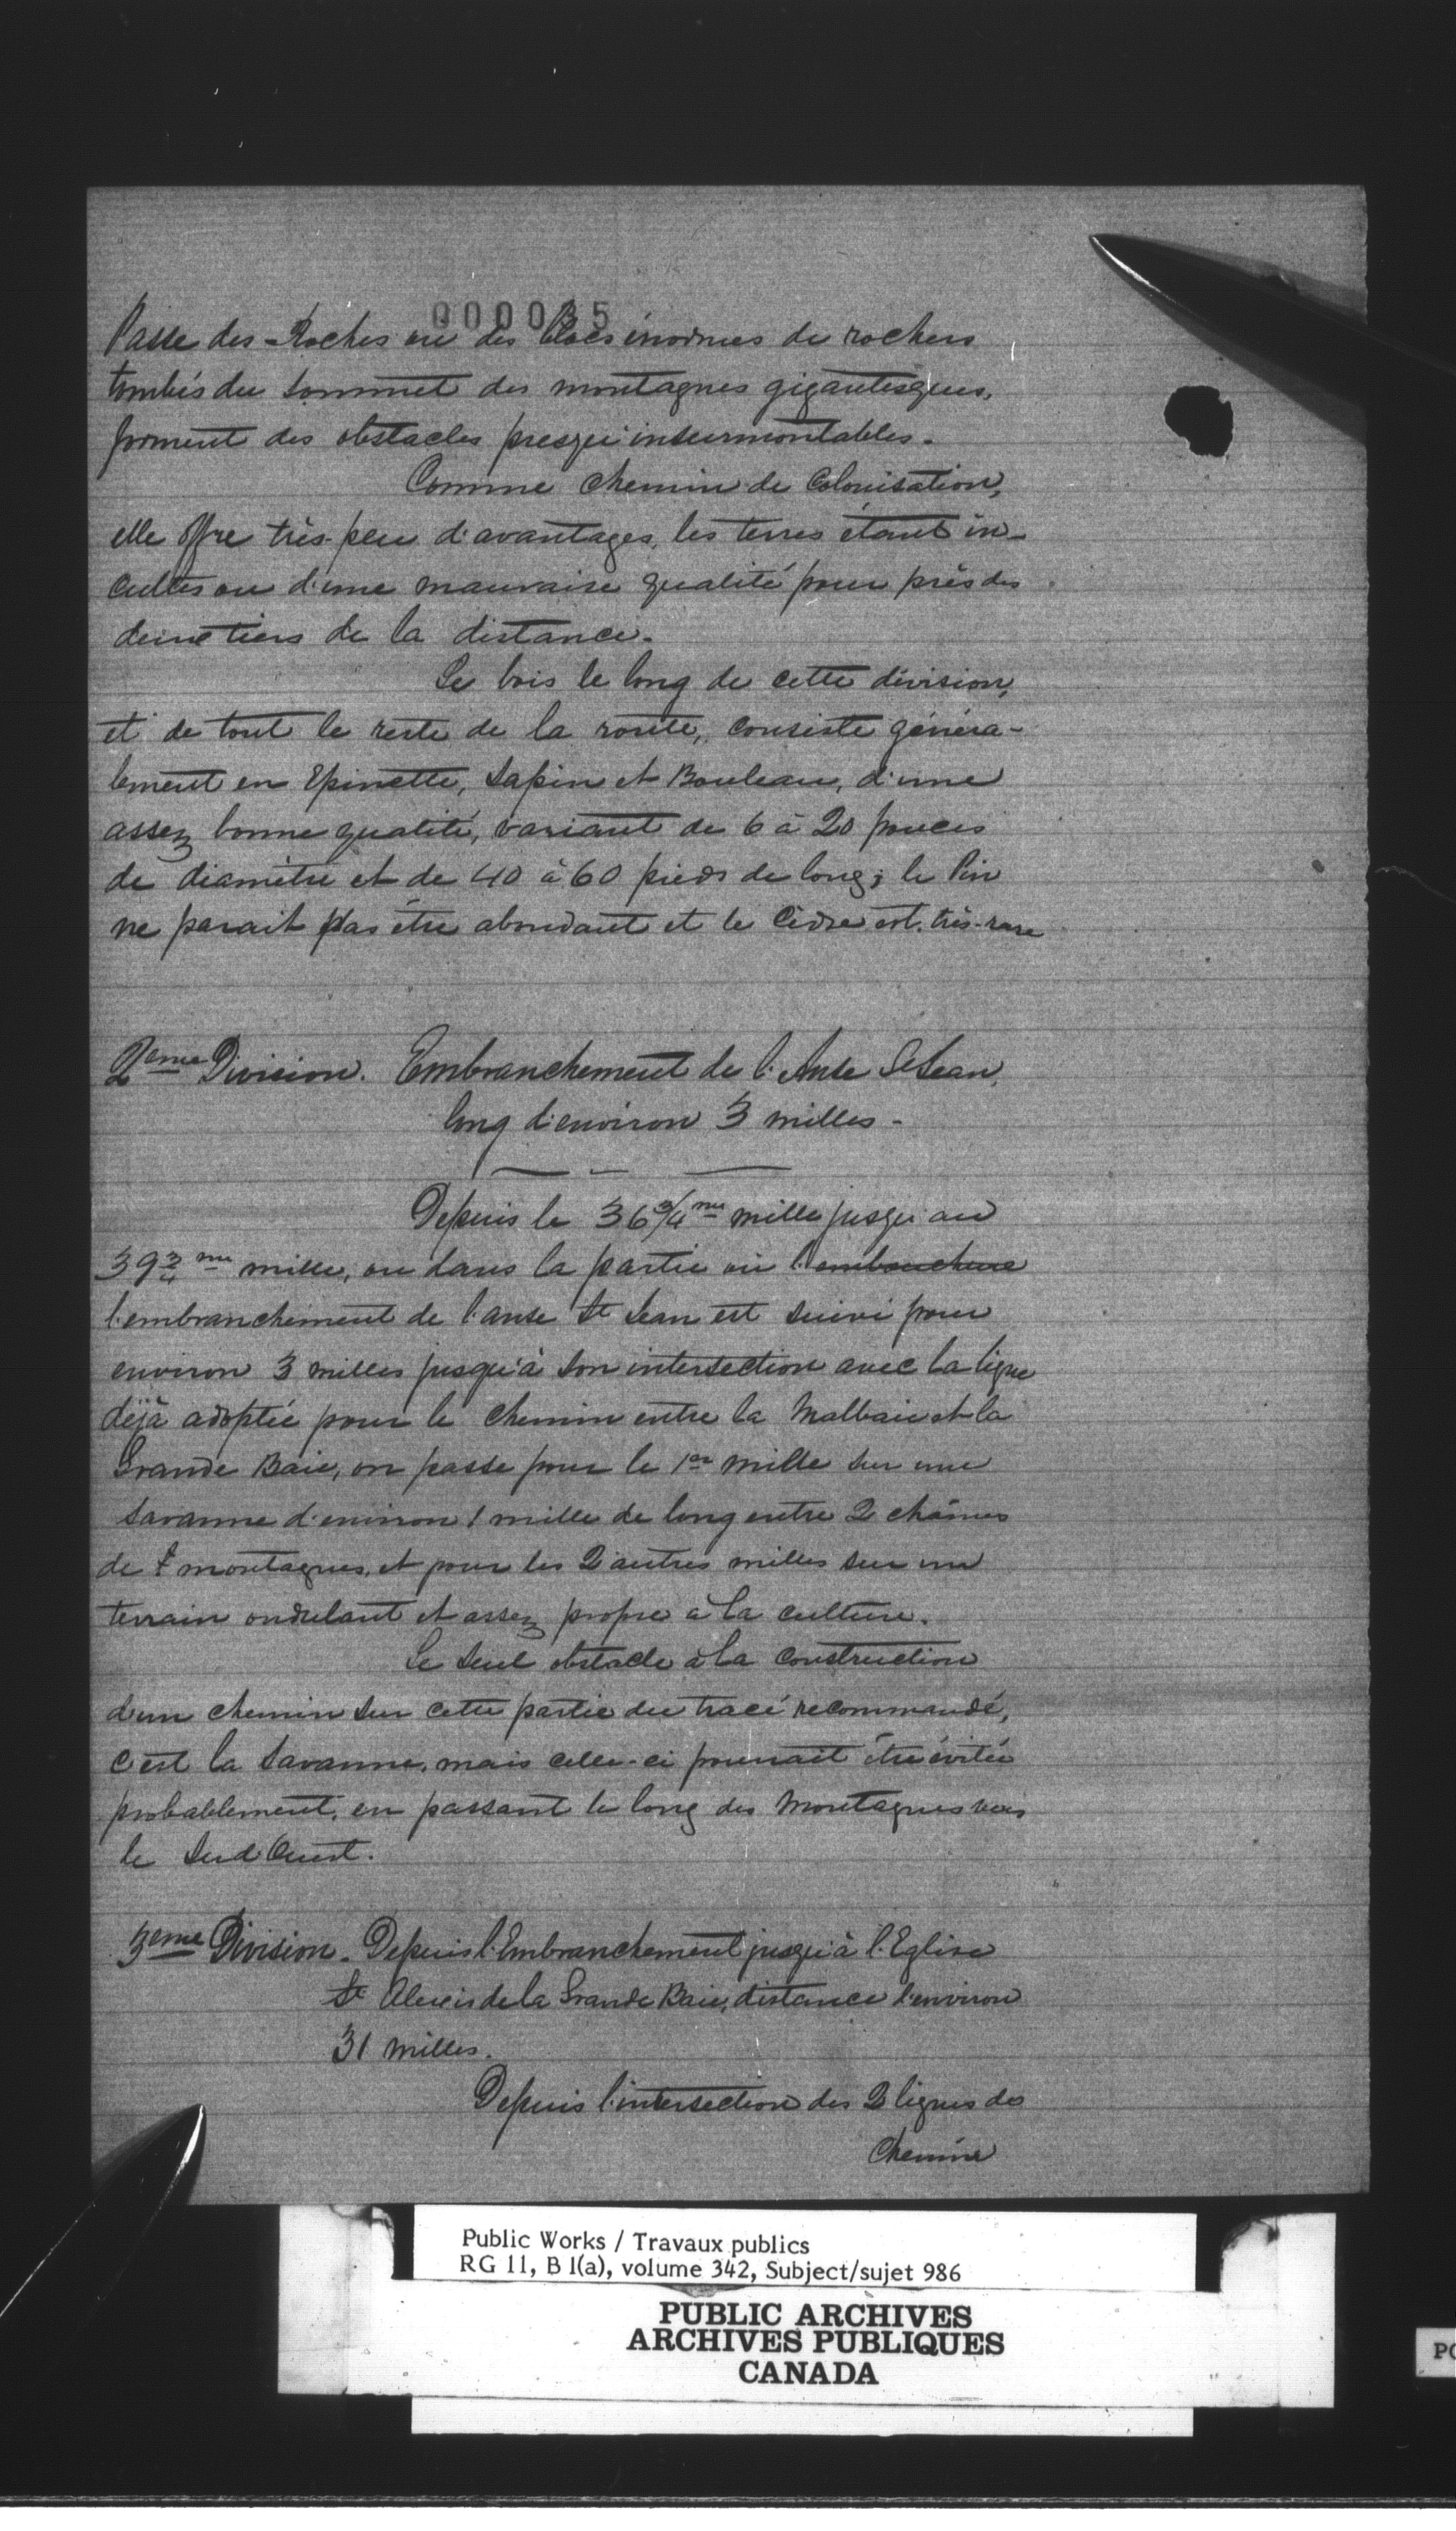 000035
Passe des-Roches où des blocs énormes de rochers
tombés du sommet des montagnes gigantesques,
forment des obstacles presqu'insurmontables.
Comme chemin de Colonisation,
elle offre très-peu d'avantages, les terres étant in-
cultes ou d'une mauvaise qualité pour près des
deux tiers de la distance.
Le bois le long de cette division,
et de tout le reste de la route, consiste généra-
lement en Epinette, Sapin et Bouleau, d'une
assez bonne qualité, variant de 6 à 20 pouces
de diamètre et de 40 à 60 pieds de long; le Pin
ne parait pas être abondant et le Cèdre est très-rare
2eme Division. Embranchement de l'Anse St Jean,
long d'environ 3 milles -
Depuis le 36 3/4 me mille jusqu'au
39 3/4 me mille, ou dans la partie où l'embouchure
l'embranchement de l'anse St Jean est suivi pour
environ 3 milles jusqu'à son intersection avec la ligne
déjà adoptée pour le chemin entre la Malbaie et la
Grande Baie, on passe pour le 1er mille sur une
savanne d'environ 1 mille de long entre 2 chaînes
de montagnes, et pour les 2 autres milles sur un
terrain ondulant et assez propre à la culture.
Le seul obstacle à la construction
d'un chemin sur cette partie du tracé recommandé,
c'est la savanne, mais celle-ci pourrait être évitée
probablement, en passant le long des Montagnes vers
le Sud Ouest.
3eme Division. Depuis l'Embranchement jusqu'à l'Eglise
St Alexis de la Grande Baie, distance d'environ
31 milles.
Depuis l'intersection des 2 lignes de
Chemin
Public Works / Travaux publics
RG 11, B 1(a), volume 342, Subject/sujet 986
PUBLIC ARCHIVES
ARCHIVES PUBLIQUES
CANADA